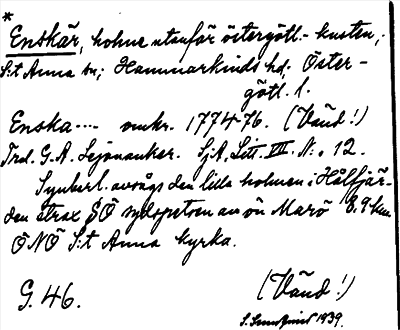 *
Enskär, holme utanför östergötl.- kusten,
S:t Anna sn; Hammarkinds hd; Öster-
götl. l.
Enska--- omkr. 1774-76. (Vänd!)
Trd. G.A. Lejonanker. SjA. Litt. VII. N:o 12.
Synberl. avsågs den lilla holmen i Hålfjär-
den strax SÖ sydspetsen av ön Marö 8.9 km
ÖNÖ S:t Anna kyrka.
G. 46.
(Vänd!)
1939.